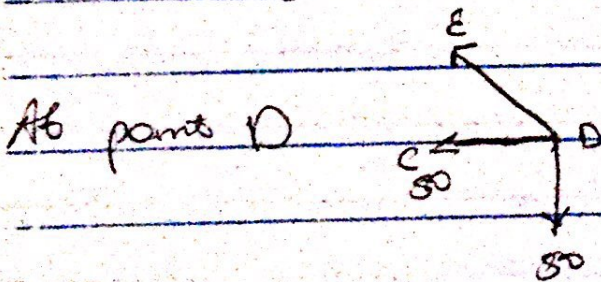 E
At point D
C D
50
50